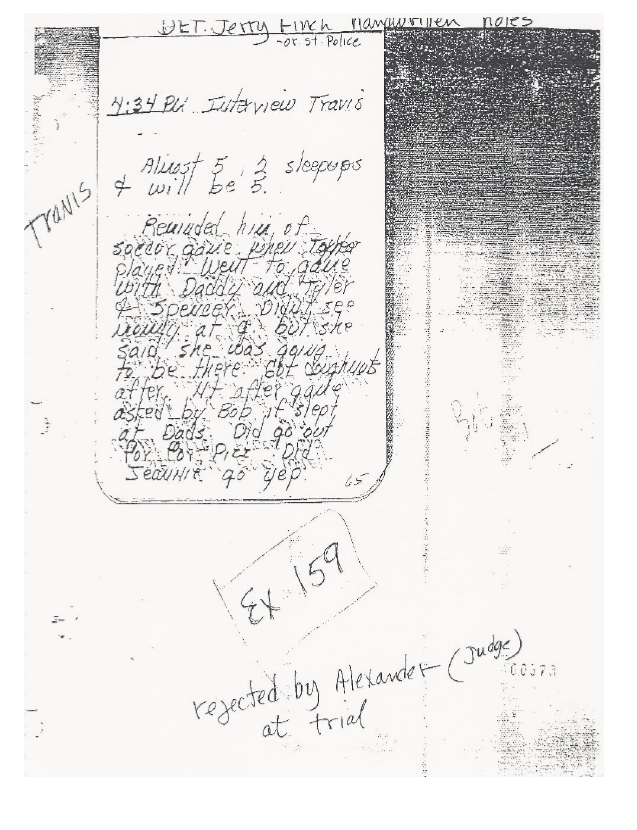 DET. Jerry Finch Handwritten notes
-or. st. Police
4:34 PM Interview Travis
Almost 5, 2 sleepups
& will be 5.
Travis
Reminded him of
soccor game when Tayler
played. Went to game
with Daddy and Tyler
& Spencer. Didn't see
mommy at g but she
said she was going
to be there Got doughnuts
after. Nt after game
asked by Bob if slept
at Dads. Did go out
for Pizz Did
Jeannie go yep
65
Bob
Ex 159
rejected by Alexander (Judge)
at trial